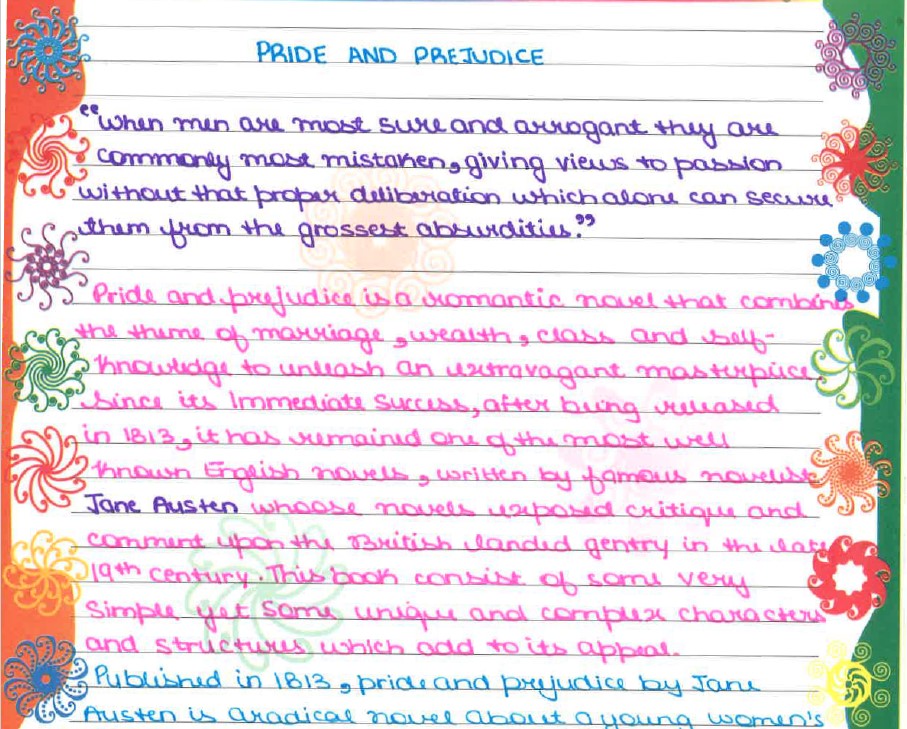 PRIDE AND PREJUDICE
"When men are most sure and arrogant they are
commonly most mistaken, giving views to passion
without that proper deliberation which alone can secure
them from the grossest absurdities."
Pride and prejudice is a romantic novel that combines
the theme of marriage, wealth, class and self-
knowledge to unleash an extravagant masterpiece.
Since its immediate success, after being released
in 1813, it has remained one of the most well
known English novels, written by famous novelist
Jane Austen whoose novels exposed critique and
comment upon the British landed gentry in the late
19th century. This book consist of some very
simple yet some unique and complex characters
and structures which add to its appeal.
Published in 1813, pride and prejudice by Jane
Austen is a radical novel about a young women's